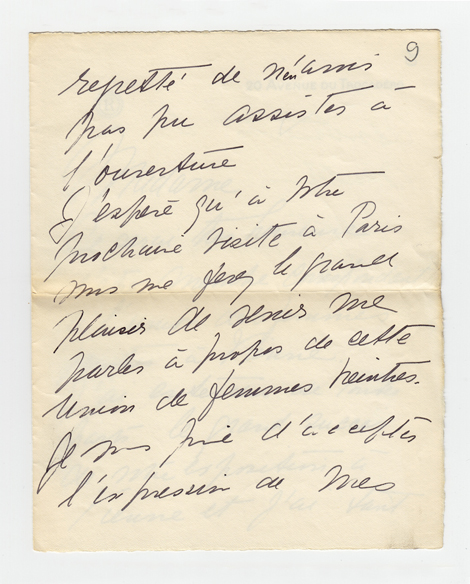 9
regretté de n'en avoir
pas pu assister à
l'ouverture
J'espère qu'à votre
prochaine visite à Paris
vous me ferez le grand
plaisir de venir me
parler à propos de cette
Union de femmes peintres.
Je vous prie d'accepter
l'expression de mes